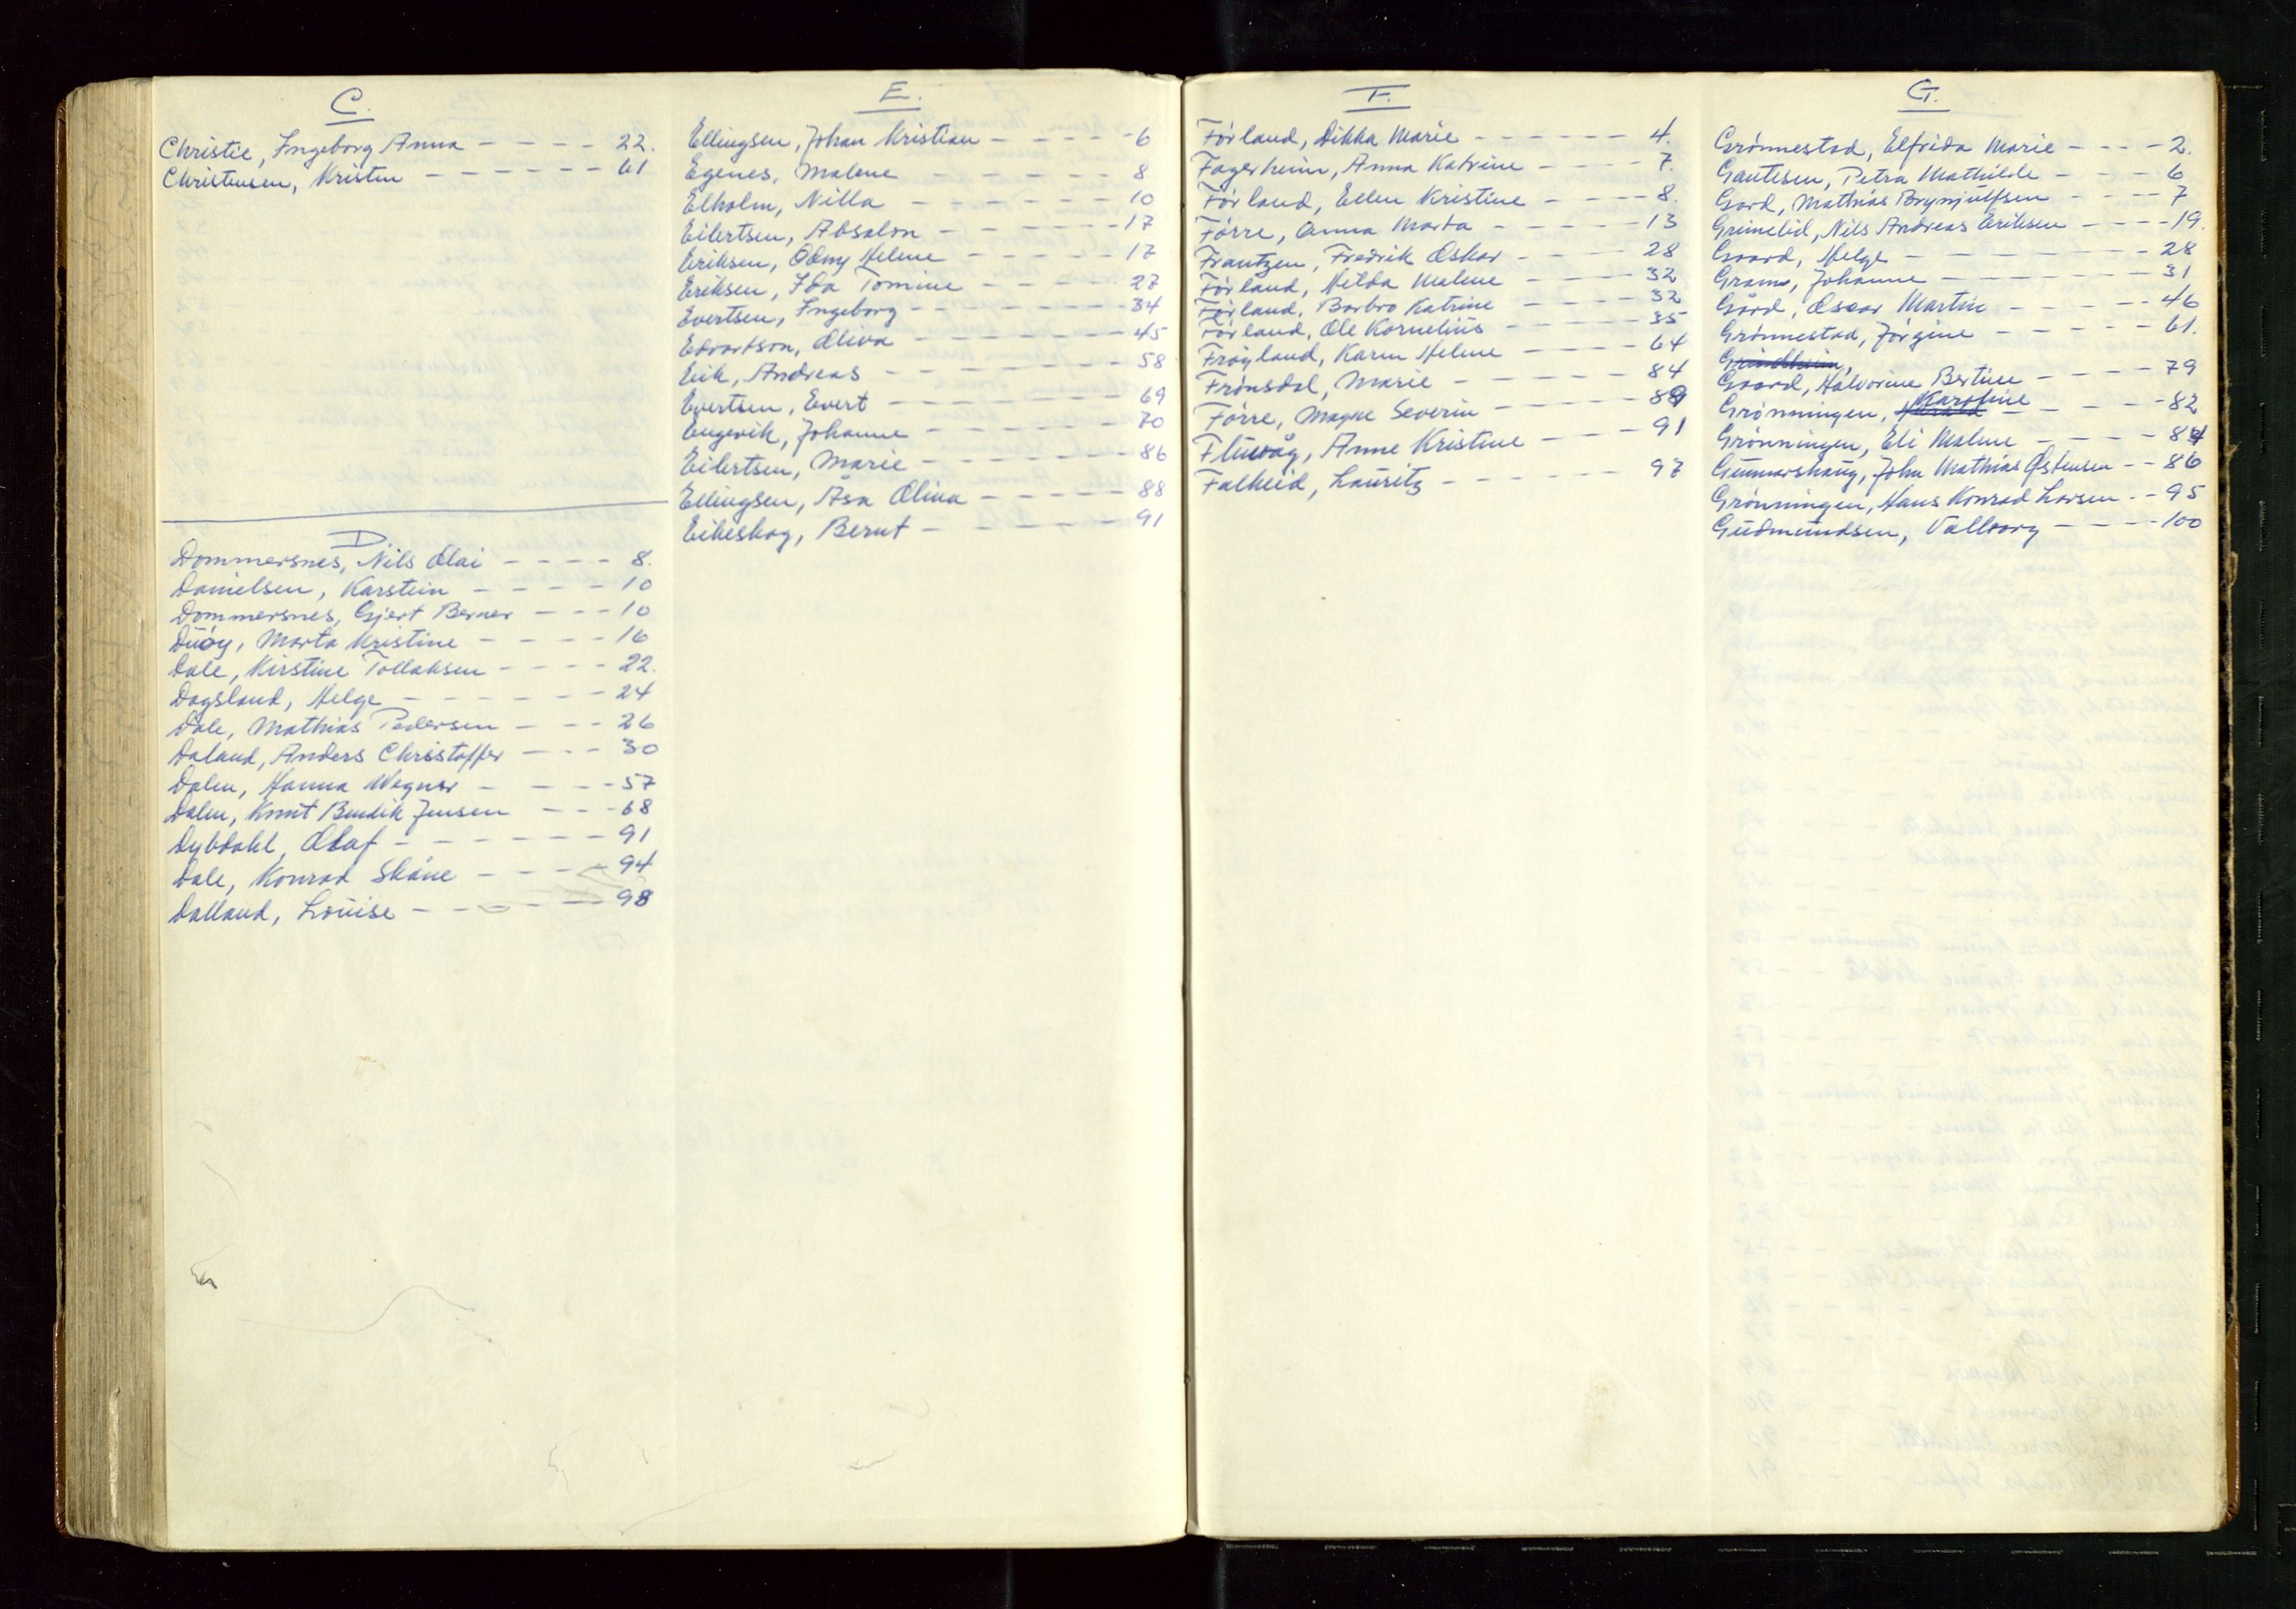 C.
Christie, Ingeborg Anna - - - - 22.
Christensen, Kristen - - - - - - 61
D
Dommersnes, Nils Olai - - - - 8.
Danielsen, Karstein - - - - - 10
Dommersnes, Gjert Berner - - - 10
Duøy, Marta Kristine - - - - 16
Dale, Kirstine Tollaksen - - - - 22.
Dagsland, Helge - - - - - - 24
Dale, Mathias Pedersen - - - 26
Daland, Anders Christoffer - - - 30
Dalen, Hanna Wegner - - - - 57
Dalen, Knut Bendik Jensen - - - 68
Dybdahl, Olaf - - - - - - 91
Dale, Konrad Skåne - - - - 94
Dalland, Louise - - - - - - 98
E.
Ellingsen, Johan Kristian - - - - - 6
Egenes, Malene - - - - - - 8
Elholm, Nilla - - - - - - 10
Eilertsen, Absalon - - - - - - 17
Eriksen, Odny Helene - - - - - 17
Eriksen, Ida Tomine - - - - - 27
Evertsen, Ingeborg - - - - - - 34
Edvartson, Oliva - - - - - - 45
Eik, Andreas - - - - - - - 58
Evertsen, Evert - - - - - - 69
Engevik, Johanne - - - - - - 70
Eilertsen, Marie - - - - - - 86
Ellingsen, Åsa Olina - - - - - 88
Eikeskog, Bernt - - - - - - 91
F.
Førland, Dikka Marie - - - - - - 4.
Fagerheim, Anna Katrine - - - - 7.
Førland, Ellen Kristine - - - - 8.
Førre, Anna Marta - - - - - 13
Frantzen, Fredrik Oskar - - - - 28
Førland, Hilda Malene - - - - 32
Førland, Barbro Katrine - - - - 32
Førland, Ole Kornelius - - - - 35
Frøyland, Karen Helene - - - - 64
Frønsdal, Marie - - - - - 84
Førre, Magne Severin - - - - 89
Fluevåg, Anne Kristine - - - - 91
Falheid, Lauritz - - - - - - 97
G.
Grønnestad, Elfrida Marie - - - - 2.
Gautesen, Petra Mathilde - - - 6
Gard, Mathias Brynjulfsen - - - - 7
Grimelid, Nils Andreas Eriksen - - - - 19.
Gaard, Helge - - - - - - - 28
Gram, Johanne - - - - - - 31
Gård, Oscar Martin - - - - - 46
Grønnestad, Jørgine - - - - - 61.
Grindheim,
Gaard, Halvorine Bertine - - - - 79
Grønningen, Karoline - - - - - 82
Grønningen, Eli Malene - - - - 84
Gunnarshaug, John Mathias Østensen - - 86
Grønningen, Hans Konrad Larsen - - 95
Gudmundsen, Valborg - - - - 100